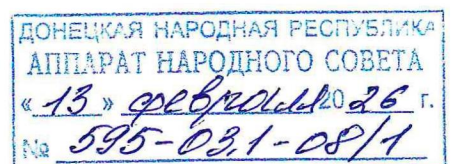 ДОНЕЦКАЯ НАРОДНАЯ РЕСПУБЛИКА
АППАРАТ НАРОДНОГО СОВЕТА
« 13 » февраля 20 26 г.
№ 595-03.1-08/1